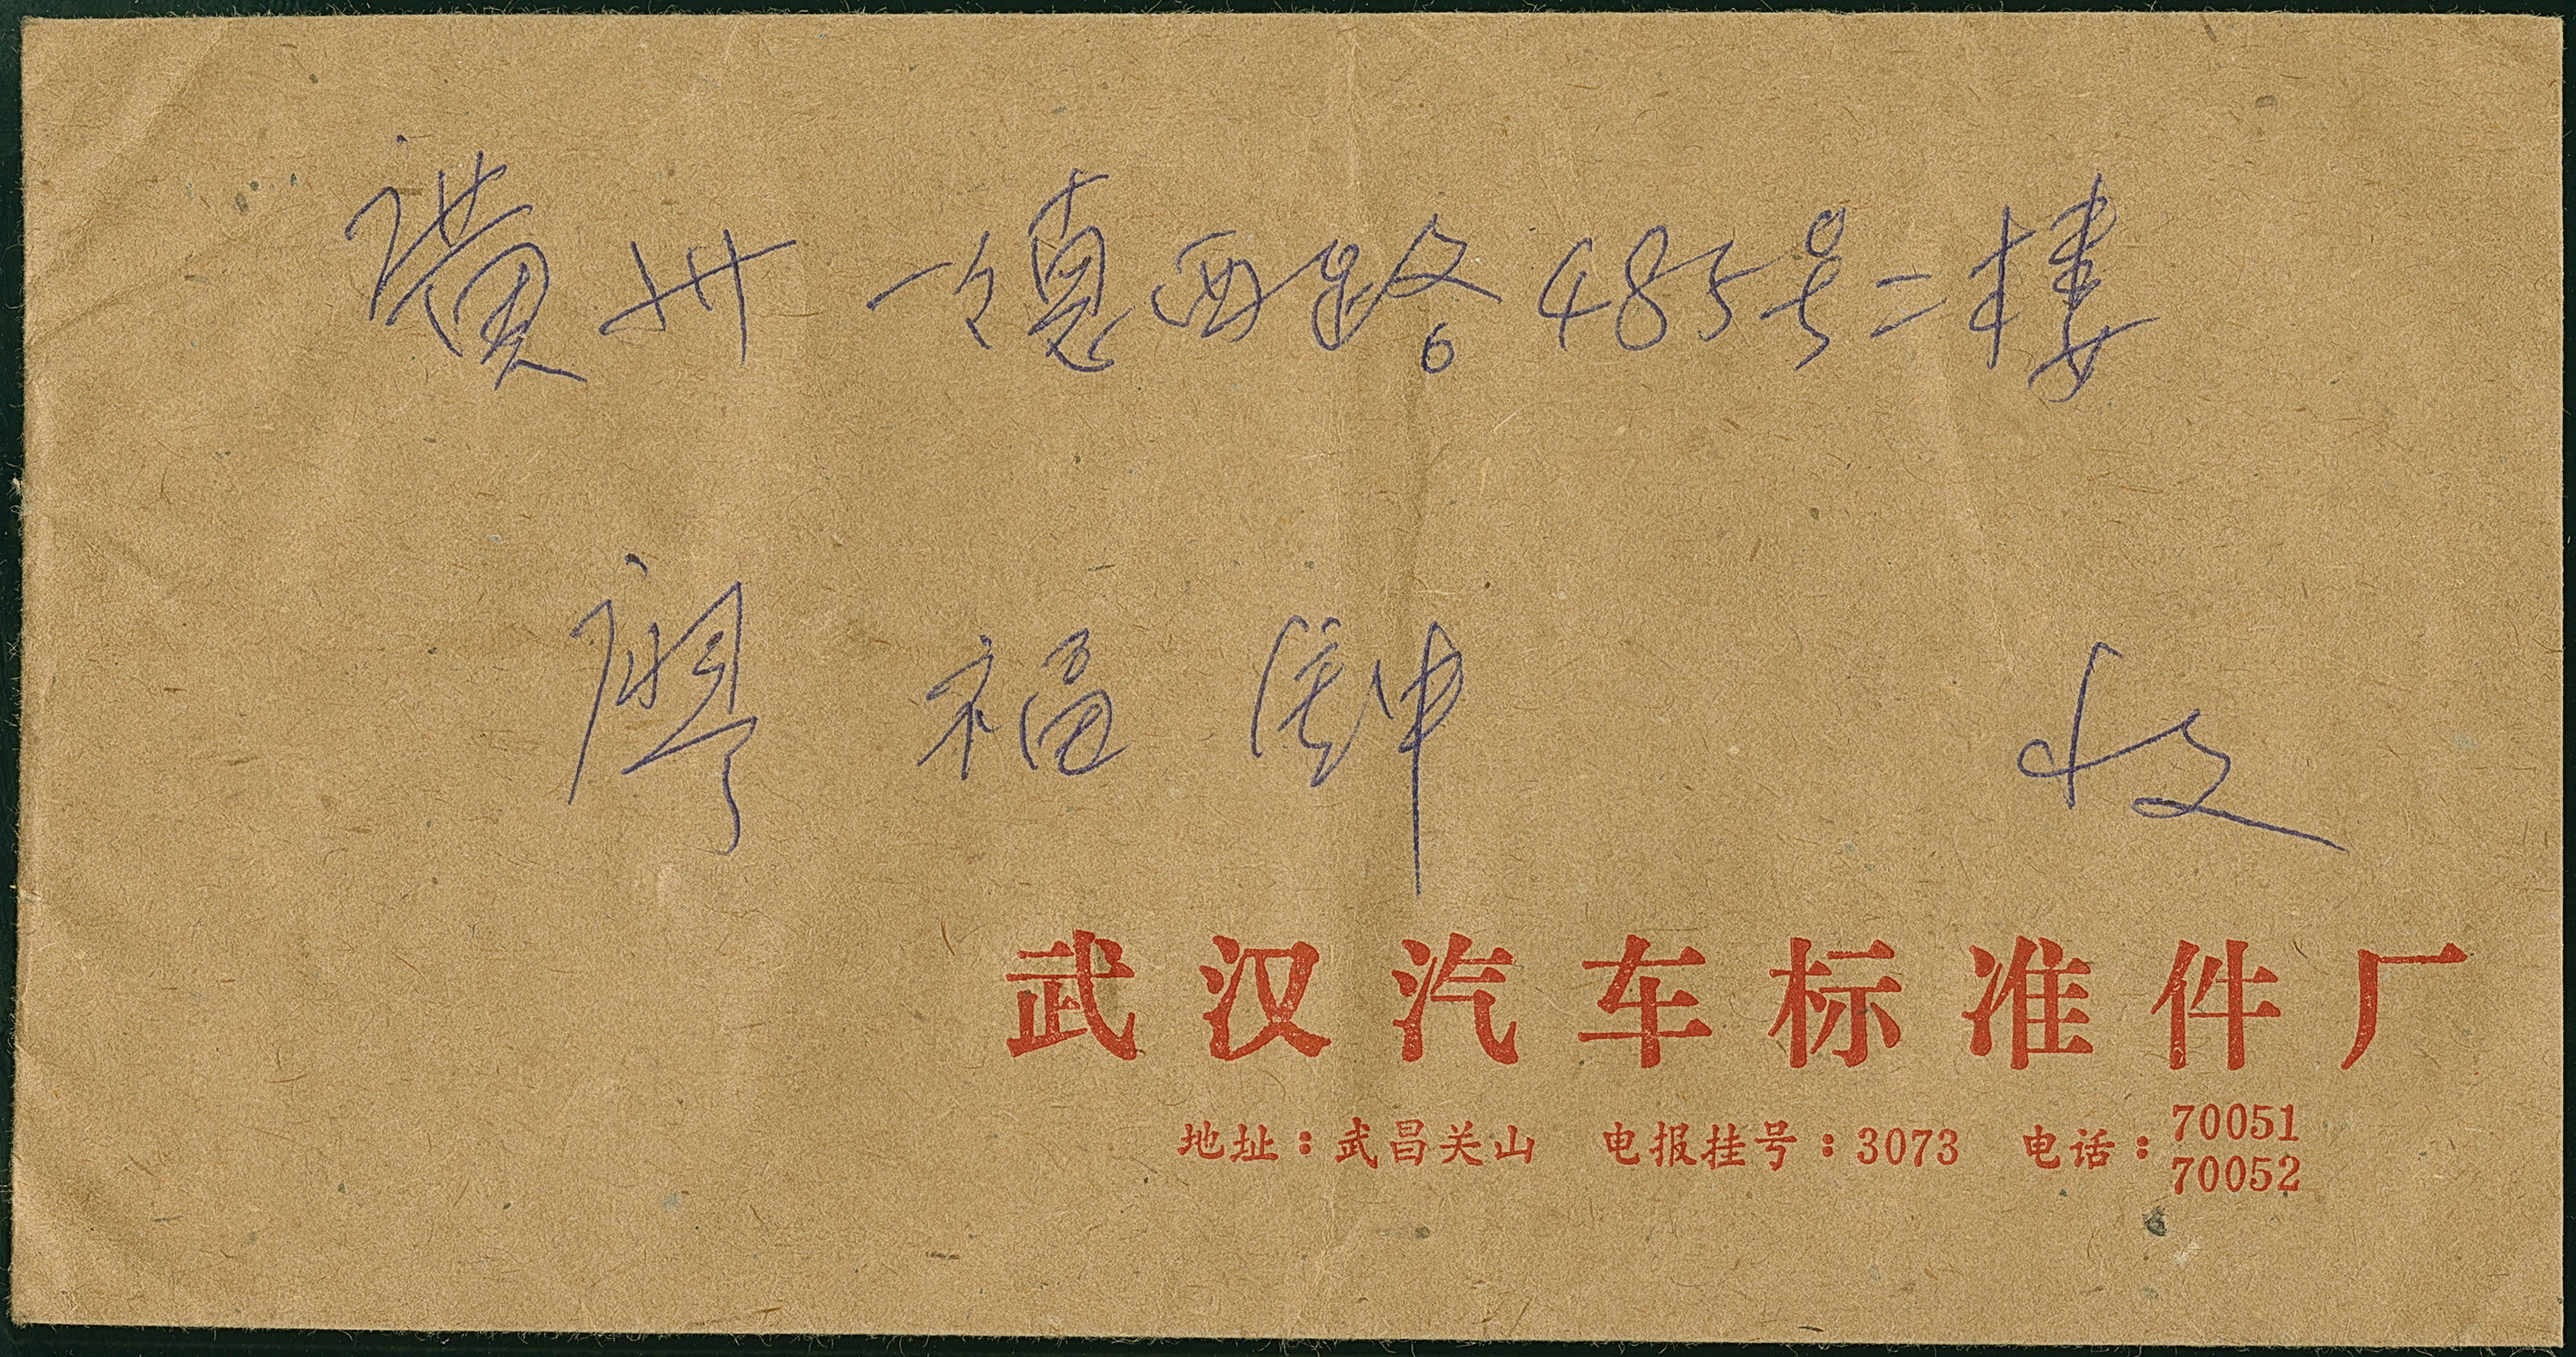 廣州一德西路485号二樓
廖福鍾 收
武汉汽车标准件厂
地址：武昌关山 电报挂号：3073 电话：70051
70052